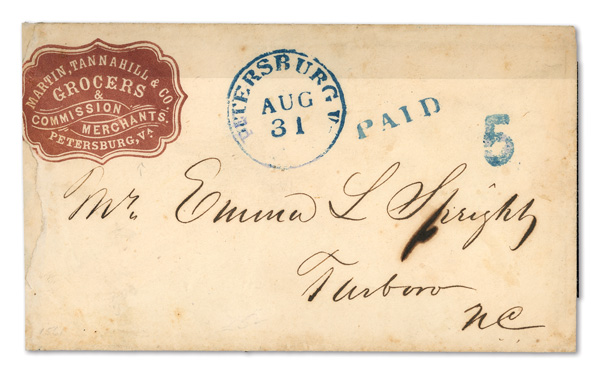 MARTIN, TANNAHILL & CO.
GROCERS
&
COMMISSION
MERCHANTS.
PETERSBURG, VA
PETERSBURG Va.
AUG
31
PAID
5
Mr. Emma L Speight
Tarboro
NC